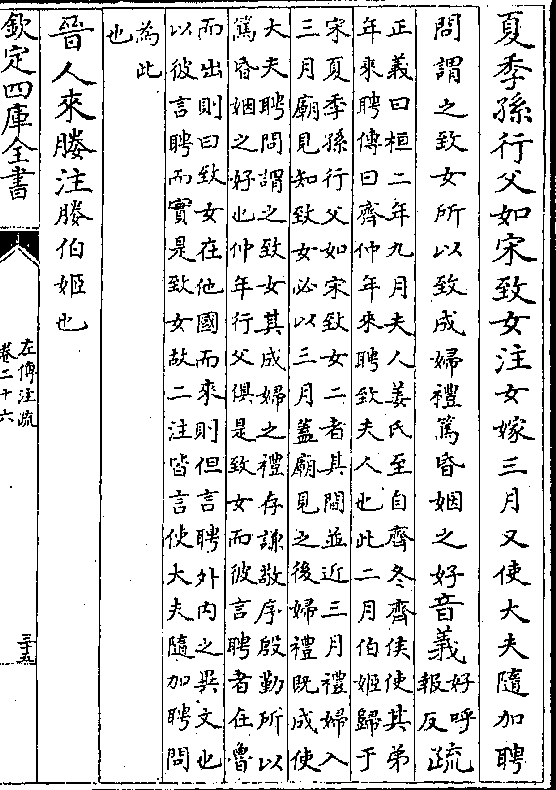 夏季孫行父如宋致女注女嫁三月又使大夫隨加聘
問謂之致女所以致成婦禮篤昏姻之好音義好呼報反疏
正義曰桓二年九月夫人姜氏至自齊冬齊侯使其弟
年來聘傳曰齊仲年來聘致夫人也此二月伯姬歸于
宋夏季孫行父如宋致女二者其間並近三月禮婦入
三月廟見知致女必以三月蓋廟見之後婦禮既成使
大夫聘問謂之致女其成婦之禮存謙敬序殷勤所以
篤昏姻之好也仲年行父俱是致女而彼言聘者在魯
而出則曰致女在他國而來則但言聘外内之異文也
以彼言聘而實是致女故二注皆言使大夫隨加聘問
為此
也
晉人來媵注媵伯姬也
欽定四庫全書
左傳注疏
卷二十六
三十五